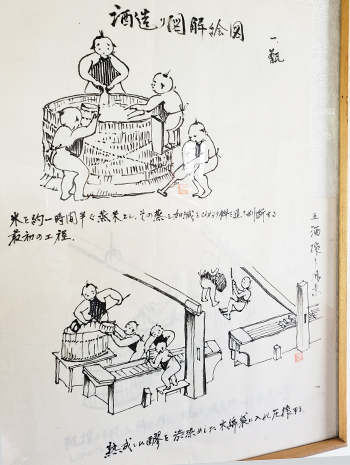 酒造り図解絵図
一、甑
米を約一時間半で蒸米とし、その蒸し加減をひねり餅を造って判断する
最初の工程。
五、酒搾り
熟成した醪を渋染めした木綿袋に入れ圧搾する。